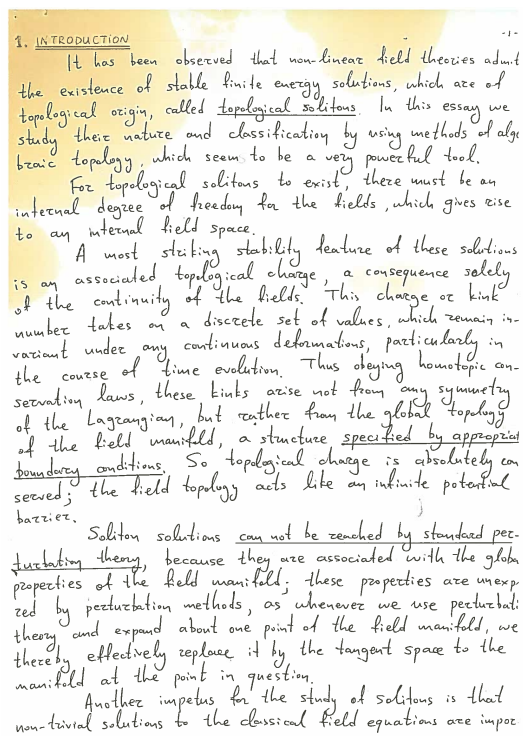 -1-
1. INTRODUCTION
It has been observed that non-linear field theories admit
the existence of stable finite energy solutions, which are of
topological origin, called topological solitons. In this essay we
study their nature and classification by using methods of alge
braic topology, which seem to be a very powerful tool.
For topological solitons to exist, there must be an
internal degree of freedom for the fields, which gives rise
to an internal field space.
A most striking stability feature of these solutions
is an associated topological charge, a consequence solely
of the continuity of the fields. This charge or kink
number takes on a discrete set of values, which remain in-
variant under any continuous deformations, particularly in
the course of time evolution. Thus obeying homotopic con-
servation laws, these kinks arise not from any symmetry
of the Lagrangian, but rather from the global topology
of the field manifold, a structure specified by appropriat
boundary conditions. So topological charge is absolutely con
served; the field topology acts like an infinite potential
barrier.
Soliton solutions can not be reached by standard per-
turbation theory, because they are associated with the globa
properties of the field manifold; these properties are unexp
red by perturbation methods, as whenever we use perturbati
theory and expand about one point of the field manifold, we
thereby effectively replace it by the tangent space to the
manifold at the point in question.
Another impetus for the study of solitons is that
non-trivial solutions to the classical field equations are impor